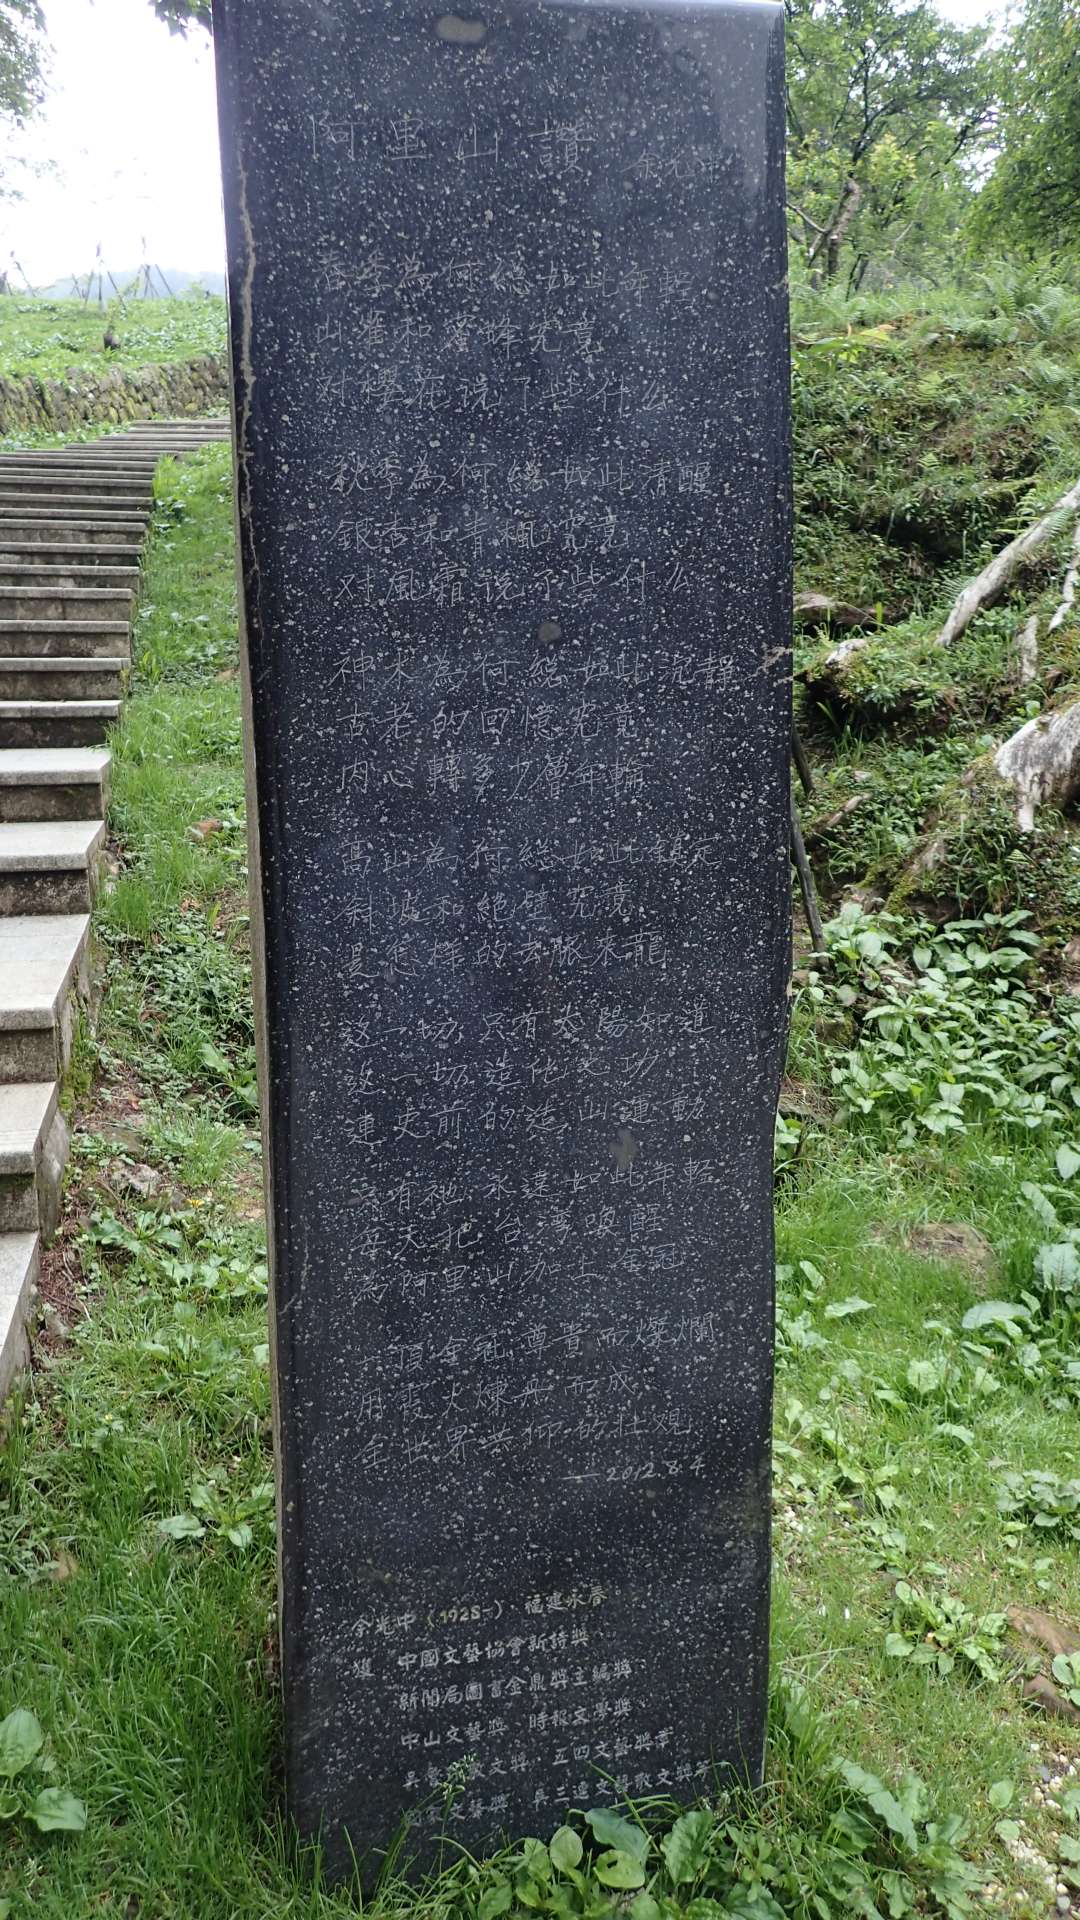 阿里山讚
余光中
春季為何總如此年輕
山雀和蜜蜂究竟
对櫻花说了些什么
秋季為何總如此清醒
銀杏和青楓究竟
对風霜说了些什么
神木為何總如此沉靜
古老的回憶究竟
內心轉多少層年輪
高山為何總如此鎮定
斜坡和絕壁究竟
是怎樣的去脈來龍
这一切只有太陽知道
这一切造化之功
連史前的造山運動
只有祂永遠如此年輕
每天把台灣喚醒
為阿里山加上金冠
一頂金冠尊貴而燦爛
用霞火煉丹而成
全世界共仰的壯观
——2012.8.4
余光中（1928-）福建永春
獲 中國文藝協會新詩獎
新聞局圖書金鼎獎主編獎
中山文藝獎 時報文學獎
吳魯芹散文獎 五四文藝獎章
國家文藝獎 吳三連文學散文獎等